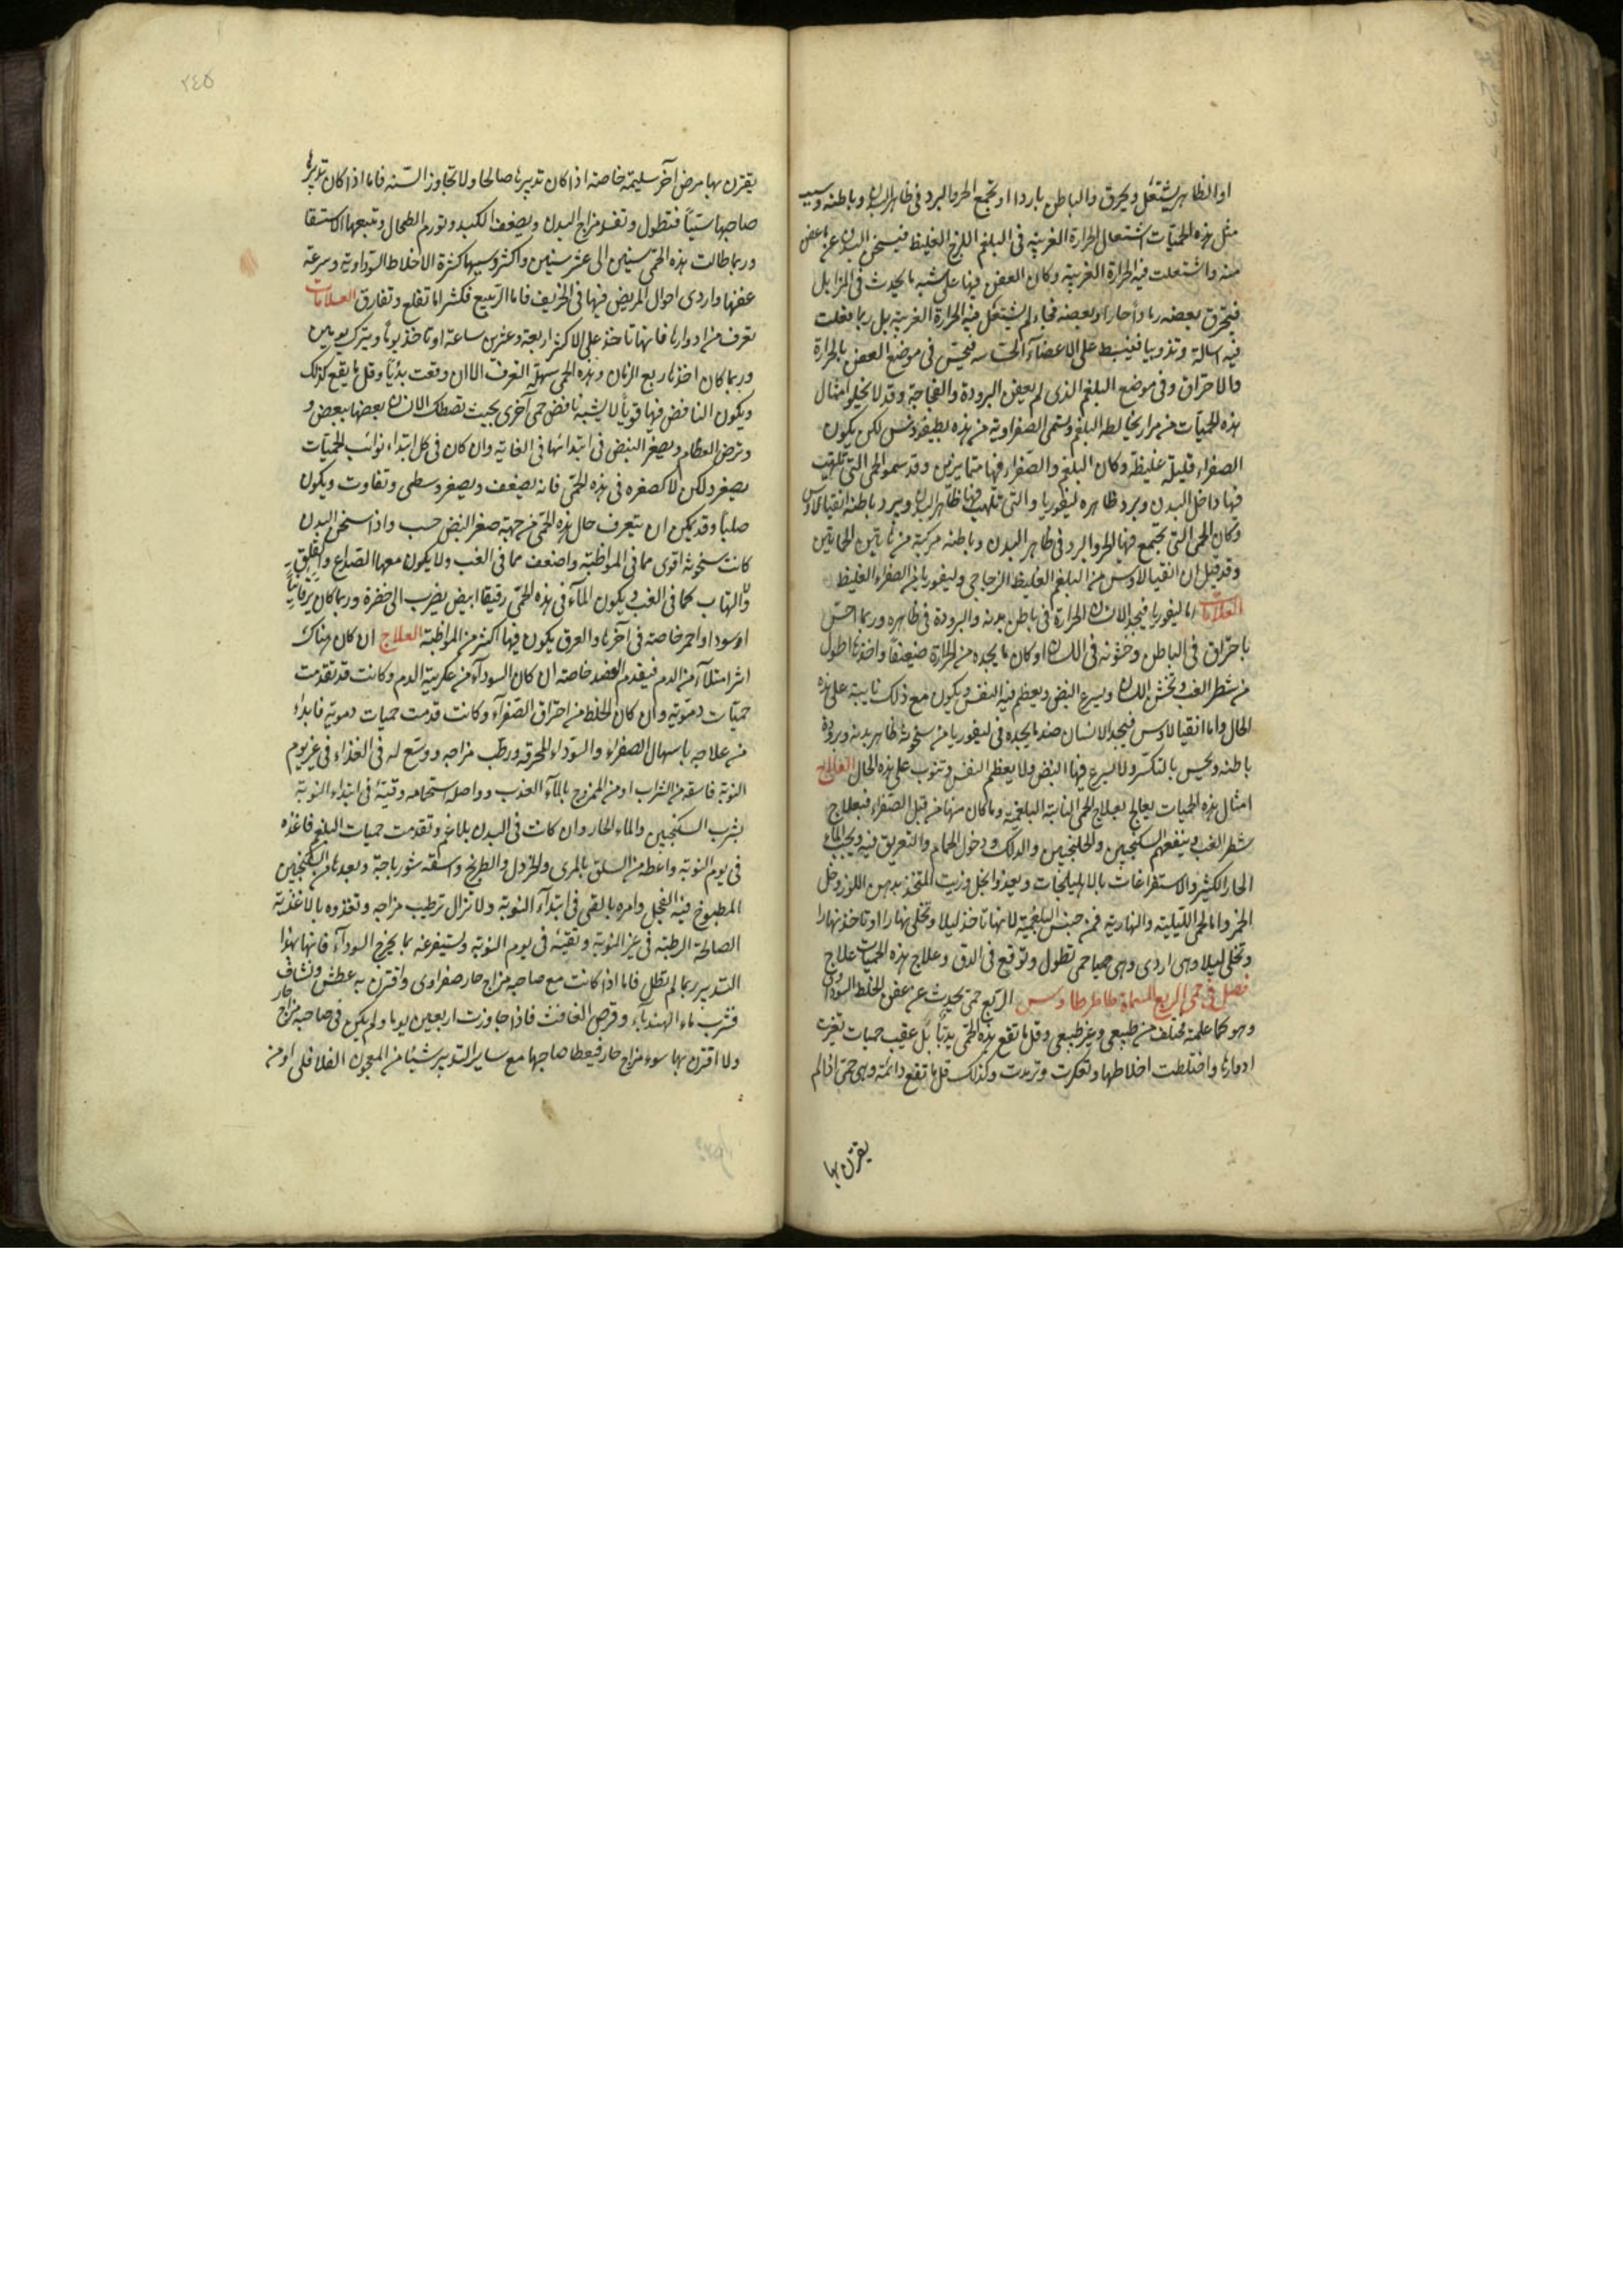 او الظاهر يشتعل ويحرق والباطن باردا او تجمع الحر والبرد في ظاهر البدن وباطنه وسبب
مثل هذه الحميات اشتعال الحرارة الغريبة في البلغم اللزج الغليظ فيسخن البدن عن ما عفن
منه واشتعلت فيه الحرارة الغريبة وكان العفن فيها على شبه ما يحدث في المزابل
فيحترق بعضه رمادا حارا وبعضه فجاء لم يشتعل فيه الحرارة الغريبة بل ربما فعلت
فيه اسالة وتذويبا فينبسط على الاعضآء الحساسه فيحس في موضع العفن بالحرارة
والاحتراق وفي موضع البلغم الذي لم يعفن البرودة والفجاجة وقد لا يخلو امثال
هذه الحميات من مرار يخالطه البلغم وتسمى الصفراوية من هذه لكن يكون
الصفراء قليلة غليظة وكان البلغم والصفراء فيها متمايزين وقد سموا الحمى التي تلهب
فيها داخل البدن وبرد ظاهره ليفوريا والتي تلهب فيها ظاهر البدن ويبرد باطنه انقيالاوس
وكان الحمى التي تجتمع فيها الحر والبرد في ظاهر البدن وباطنه مركبة من هاتين الحمايتين
وقد قيل ان انقيالاوس من البلغم الغليظ الزجاجي وليفوريا من الصفراء الغليظ
العلامات اما ليفوريا فيجد الانسان الحرارة في باطن بدنه والبرودة في ظاهره وربما احس
باحتراق في الباطن وخشونه في اللسان او كان ما يجده من الحرارة ضعيفا واخذها اطول
من شطر الغب وتخشن اللسان ويسرع النبض ويعظم فيه النفس ويكون مع ذلك نايبة على هذه
الحال واما انقيالاوس فيجد الانسان ضد ما يجده في ليفوريا من سخونة ظاهر بدنه وبرودة
باطنه ويحس بالتكسر ولا يسرع فيها النبض ولا يعظم النفس وتنوب على هذه الحال العلاج
امثال هذه الحميات يعالج بعلاج الحمى النايبة البلغمية وما كان منها من قبل الصفراء فبعلاج
شطر الغب وينفعهم السكنجبين والجلنجبين والدلك ودخول الحمام والتعريق فيه ويجب الماء
الحار الكثير والاستفراغات بالاهليلجات ويغذوا بخل وزيت المتخذ بدهن اللوز وخل
الخمر واما الحمى الليلية والنهارية فمن جنس البلغمية لانها تاخذ ليلا وتخلى نهارا او تاخذ نهارا
وتخلى ليلا وهي اردى وهي جميعا حمى تطول وتوقع في الدق وعلاج هذه الحميات علاج
فصل في حمى الربع المسماة طاطرطاوس الربع حمى يحدث عن عفن الخلط السوداوي
وهو كما علمته مختلف من طبيعي وغير طبيعي وقل ما تقع هذه الحمى بديا بل عقيب حميات تغيرت
ادوارها واختلطت اخلاطها وتعكرت وترمدت وكذلك قل ما تقع دائمة وهي حمى اذا لم
يقترن بها
٢٤٥
يقترن بها مرض آخر سليمة خاصة اذا كان تدبيرها صالحا ولا تجاوز السنه فاما اذا كان تدبير
صاحبها سيئا فتطول وتفسد مزاج البدن ويضعف الكبد وتورم الطحال وتتبعها الاستسقا
وربما طالت هذه الحمى سنين الى عشر سنين واكثر وسببها كثرة الاخلاط السوداوية وسرعة
عفنها واردى احوال المريض فيها في الخريف فاما الربيع فكثيرا ما تقلع وتفارق العلامات
تعرف من ادوارها فانها تاخذ على الاكثر اربعة وعشرين ساعة او تاخذ يوما ويترك يومين
وربما كان اخذها ربع الزمان وهذه الحمى سهلة التعرف الا ان وقعت بديا وقل ما يقع كذلك
ويكون النافض فيها قويا لا يشبه نافض حمى آخرى بحيث تصطك الاسنان بعضها ببعض و
وترض العظام ويصغر النبض في ابتدائها في الغاية وان كان في كل ابتداء نوائب الحميات
يصغر ولكن لا كصغره في هذه الحمى فانه يضعف ويصغر وسطي وتفاوت ويكون
صلبا وقد يمكن ان يتعرف حال هذه الحمى من جهة صغر النبض حسب واذا سخن البدن
كانت سخونته اقوى مما في المواظبة واضعف مما في الغب ولا يكون معها الصداع والقلق
والتهاب كما في الغب ويكون المآء في هذه الحمى رقيقا ابيض يضرب الى خضرة وربما كان يرقانيا
او سودا او احمر خاصة في آخرها والعرق يكون فيها اكثر من المواظبة العلاج ان كان هناك
اثر امتلآء من الدم فيقدم الفصد خاصة ان كان السودآء من عكرية الدم وكانت قد تقدمت
حميات دموية وان كان الخلط من احتراق الصفرآء وكانت قدمت حميات دموية فابدأ
من علاجه باسهال الصفراء والسوداء المحرقه ورطب مزاجه ووسع له في الغذاء في غير يوم
النوبة فاسقه من الشراب او من الممزوج بالمآء العذب وواصله استحمامه وقيئه في ابتداء النوبة
بشرب السكنجبين والماء الحار وان كانت في البدن بلاغم وتقدمت حميات البلغم فاغذه
في يوم النوبة واعطه من السلق بالمرى والخردل والطريخ واسقه شورباجة وبعدها من السكنجبين
المطبوخ فيه الفجل وامره بالقي في ابتدآء النوبة ولا تزال ترطيب مزاجه وتغذوه بالاغذية
الصالحة الرطبة في غير النوبة وتقيئه في يوم النوبة وتستفرغه بما يخرج السودآء فانها بهذا
التدبير ربما لم تطل فاما اذا كانت مع صاحبه مزاج حار صفراوي واقترن به عطش ونشاف
فشرب ماء الهندبآء وقرص الغافث فاذا جاوزت اربعين يوما ولم يكن في صاحبه مزاج حار
ولا اقترن بها سوء مزاج حار فيعطا صاحبها مع ساير التدبير شيئا من المعجون الفلافلي او من